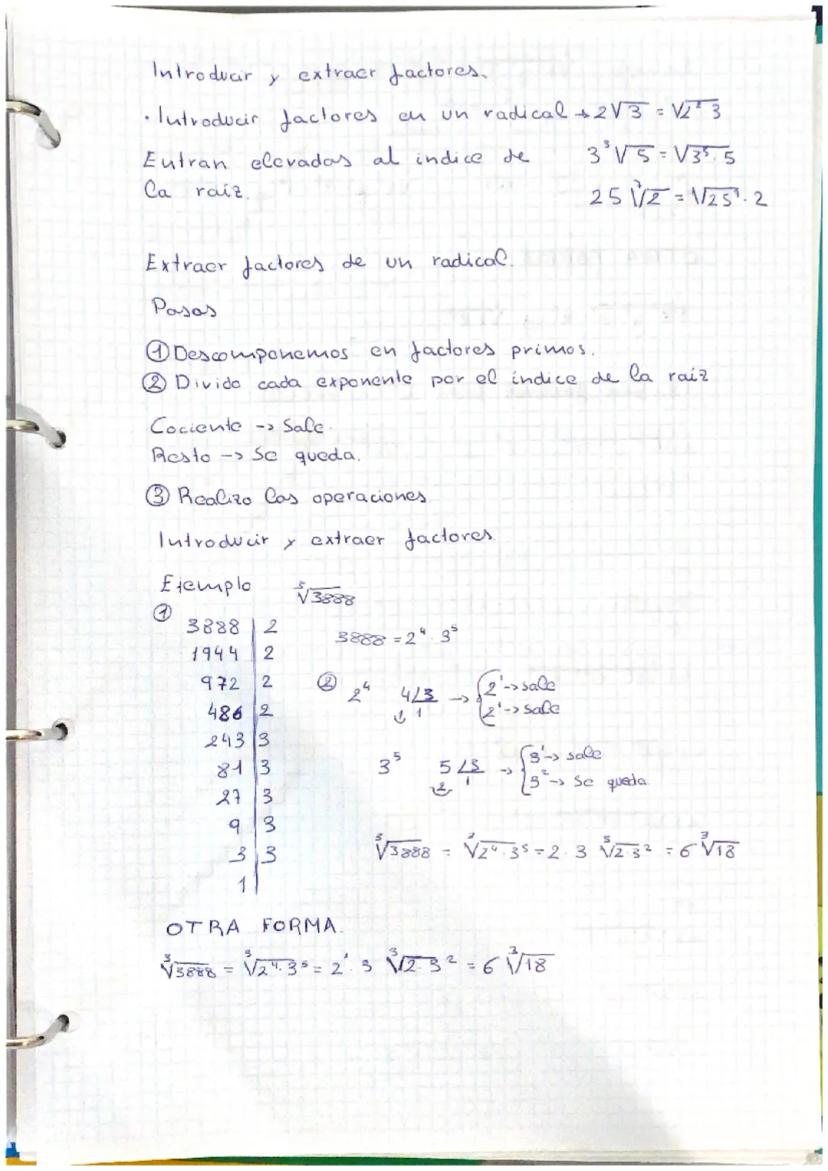 Introducir y extraer factores.
· Introducir factores en un radical → 2√3 = √2² 3
Entran elevadas al indice de 3³√5 = √3³·5
la raíz. 25 ⁷√2 = √25⁷·2
Extraer factores de un radical.
Pasos
① Descomponemos en factores primos.
② Divido cada exponente por el índice de la raiz
Cociente -> Sale.
Resto -> Se queda.
③ Realizo las operaciones
Introducir y extraer factores
Ejemplo ³√3888
①
3888 | 2
1944 | 2
972 | 2
486 | 2
243 | 3
81 | 3
27 | 3
9 | 3
3 | 3
1 |
3888 = 2⁴ · 3⁵
② 2⁴ 4 ∟3 → { 2¹ -> sale
↓ 1 1 2¹ -> sale
3⁵ 5 ∟3 → { 3¹ -> sale
2 1 3² -> se queda
³√3888 = ³√2⁴·3⁵ = 2·3 ³√2·3² = 6 ³√18
OTRA FORMA.
³√3888 = ³√2⁴·3⁵ = 2¹·3 ³√2·3² = 6 ³√18